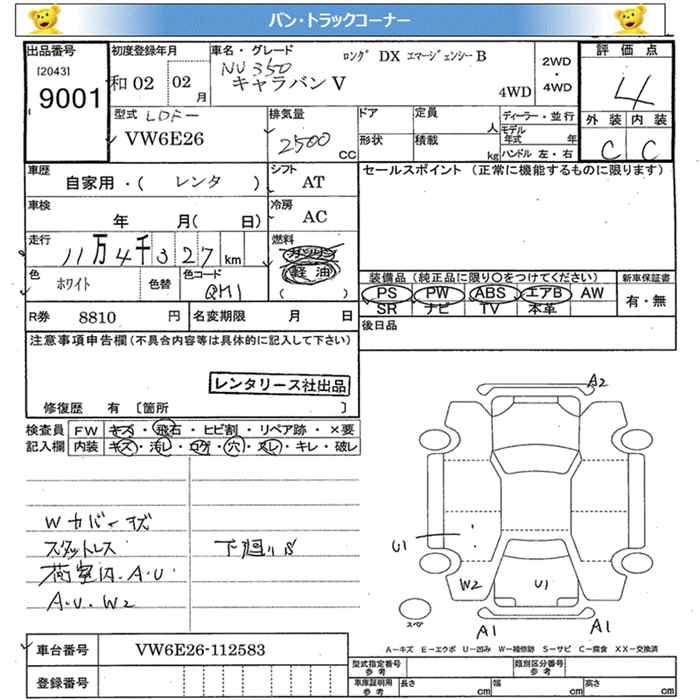 バン・トラックコーナー
出品番号 初度登録年月 車名・グレード ロング DX エマージェンシー B 2WD ・ 4WD 評価点
[2043] 9001 和02 02月 NV350 キャラバン V 4WD 4
型式 LDF- 排気量 ドア 定員 人 ディーラー・並行 外装 内装
VW6E26 2500 CC 形状 積載 kg モデル年式 年 ハンドル 左・右 C C
車歴 自家用・( レンタ ) シフト AT セールスポイント (正常に機能するものに限ります)
車検 年 月( 日) 冷房 AC
走行 11万4千327km 燃料 ガソリン 軽油 ( )
色 ホワイト 色替 色コード QM1 装備品 (純正品に限り○をつけてください) 新車保証書
PS PW ABS エアB AW 有・無
SR ナビ TV 本革
R券 8810 円 名変期限 月 日 後日品
注意事項申告欄 (不具合内容等は具体的に記入して下さい)
レンタリース社出品
修復歴 有 [箇所 ]
検査員 FW キズ・飛石・ヒビ割・リペア跡・×要
記入欄 内装 キズ・汚レ・コゲ・穴・スレ・キレ・破レ
Wカバーキズ
スタットレス 下廻りS
荷室内.A.U
A.U.W2
A2
U1
W2 U1
スペア
A1 A1
A−キズ E−エクボ U−凹み W−補修跡 S−サビ C−腐食 XX−交換済
車台番号 VW6E26-112583 型式指定番号 参考 類別区分番号 参考
登録番号 車庫証明用 参考 長さ cm 幅 cm 高さ cm